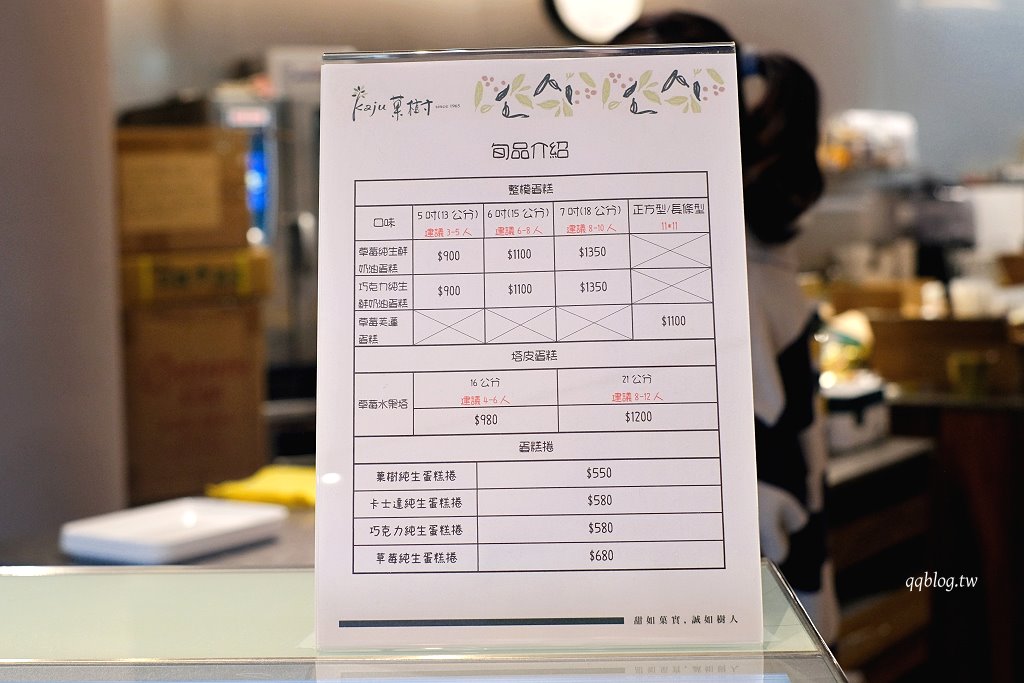 Kaju 菓樹 since 1965
旬品介紹
整模蛋糕
口味 5吋(13公分) 6吋(15公分) 7吋(18公分) 正方型/長條型
建議 3-5 人 建議 6-8 人 建議 8-10 人 11*11
草莓純生鮮
奶油蛋糕 $900 $1100 $1350
巧克力純生
鮮奶油蛋糕 $900 $1100 $1350
草莓芙蓮
蛋糕 $1100
塔皮蛋糕
草莓水果塔 16公分 21公分
建議 4-6 人 建議 8-12 人
$980 $1200
蛋糕捲
菓樹純生蛋糕捲 $550
卡士達純生蛋糕捲 $580
巧克力純生蛋糕捲 $580
草莓純生蛋糕捲 $680
甜如菓實,誠如樹人
qqblog.tw